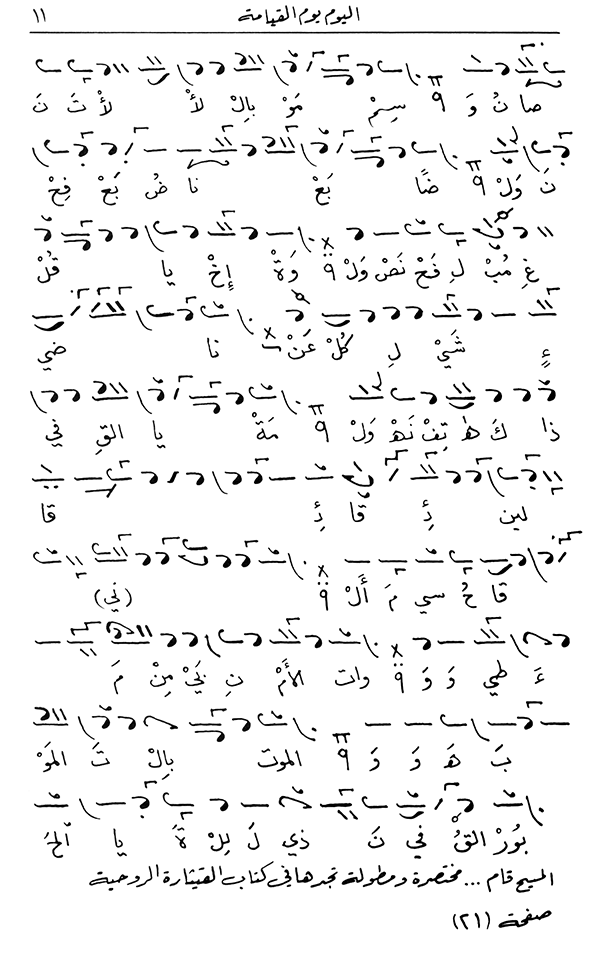 اليوم يوم القيامة ١١
صا نُ وَ ٩ سِـمْ مَوْ بِالْ لأَ لأَ تَ نَ
نَ وَلْ ٩ ضًا بَعْ نا ضُ بَعْ فِحْ
غِ مُبْ لِ فَحْ نَصْ وَلْ ٩ وَةْ إِخْ يا قُلْ
ءٍ شَيْ لِ كُلْ عَنْ نا ضي
ذا كَ هَا تِفْ نَهْ وَلْ ٩ مَةْ يا القِ في
لين ئِ قَا ئِ قا
قا حُ سي مَ أَلْ ٩ (ني)
ءَ طي وَ وَ ٩ وات الأَمْ نِ بَيْ مِنْ مَ
بَ هَ وَ وَ ٩ الموت بِالْ تَ المَوْ
بُورْ القُ في نَ ذي لَ لِلْ ةَ يا اَلحَ
المسيح قام ... مختصرة ومطولة تجدها في كتاب القيثارة الروحية
صفحة (٢١)